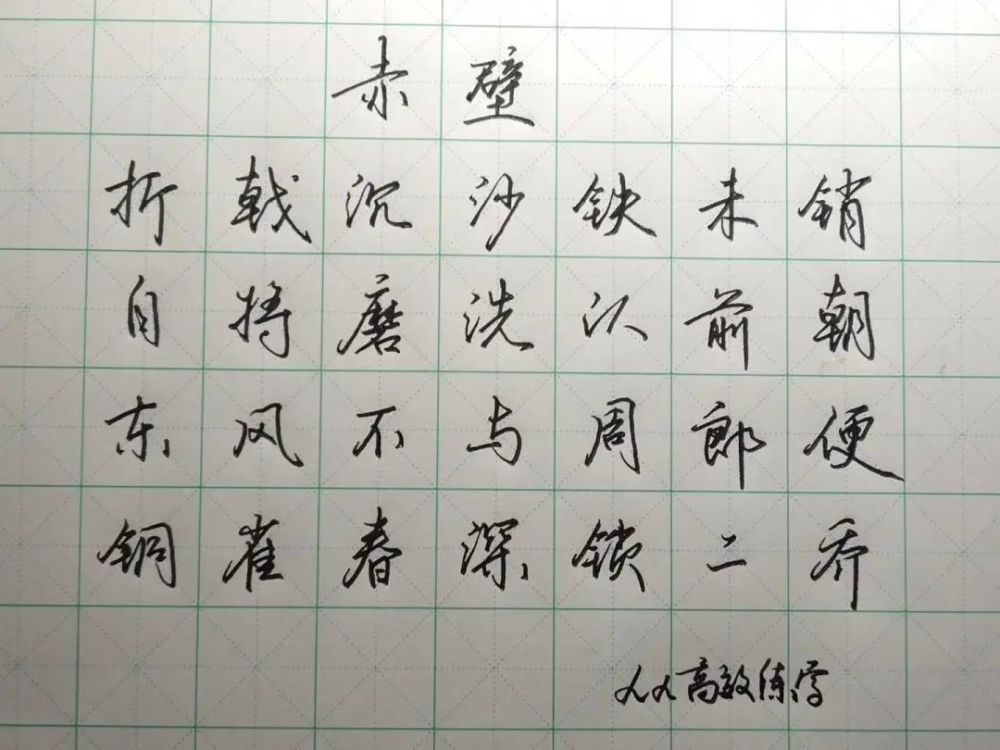 赤壁
折戟沉沙铁未销
自将磨洗认前朝
东风不与周郎便
铜雀春深锁二乔
人人高效练字